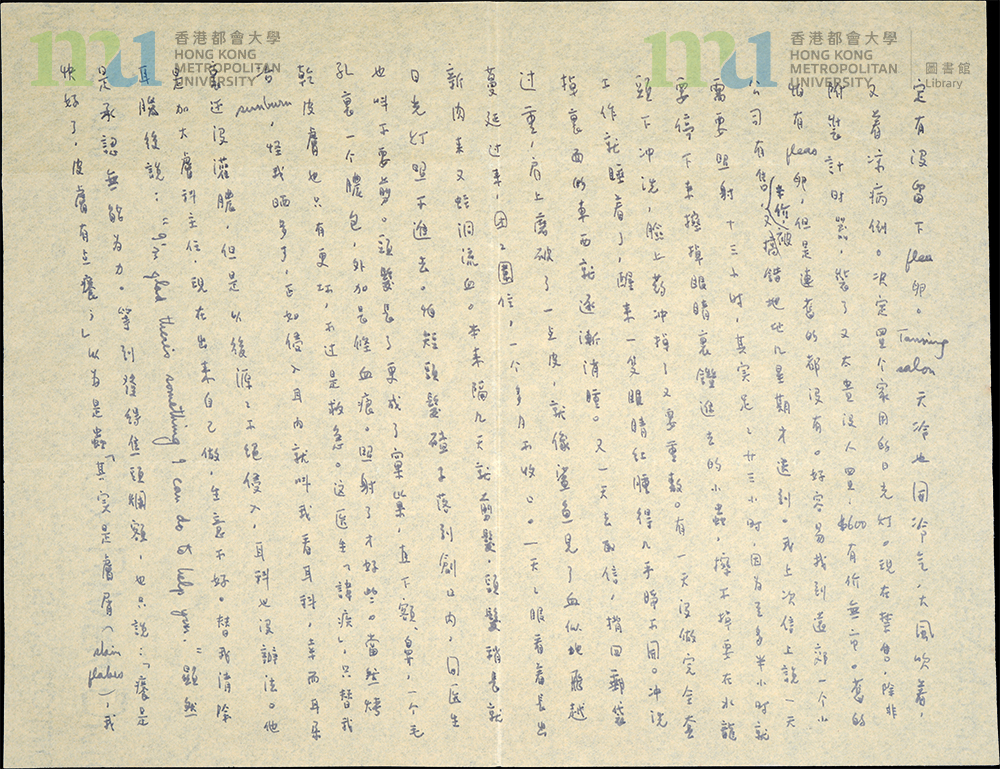 香港都會大學
HONG KONG
METROPOLITAN
UNIVERSITY
香港都會大學
HONG KONG
METROPOLITAN
UNIVERSITY
圖書館
Library
定有沒留下flea卵。Tanning salon天冷也開冷气,大風吹着,
又着凉病倒。决定買个家用的日光灯。現在禁售,除非
附裝計时器,裝了又太貴沒人買,$600有价無市。舊的
怕有fleas卵,但是連舊的都沒有。好容易找到遠郊一个小
公司有售(半价),又搞錯地址几星期才送到。我上次信上說一天
需要照射十三小时,其实是廿三小时,因为至多半小时就
要停下来擦掉眼睛裏鑽進去的小蟲,擦不掉要在水龍
頭下冲洗,臉上葯冲掉了又要重敷。有一天沒做完全套
工作就睡着了,醒来一隻眼睛紅腫得几乎睁不開。冲洗
掉裏面的東西就逐漸消腫。又一天去取信,揹回郵袋
过重,肩上磨破了一点皮,就像鯊魚見了血似地飛越
蔓延过来,团团圍住,一个多月不收口。一天天眼看着長出
新肉来又蛀洞流血。本来隔几天就剪髮,頭髮稍長就
日光灯照不進去。怕短頭髮碴子落到創口内,问医生
也叫不要剪。頭髮長了更成了窠巢,直下額、鼻,一个毛
孔裏一个膿包,外加長條血痕。照射了才好些。當然烤
乾皮膚也只有更坏,不过是救急。这医生「諱疾」,只替我
治sunburn,怪我晒多了,正如侵入耳内就叫我看耳科,幸而耳朵
裏还沒灌膿,但是以後源源不絕侵入,耳科也沒辦法。他
是加大膚科主任,現在出来自己做,生意不好。替我清除
耳膜後說:"I'm glad there's something I can do to help you." 顯然
是承認無能为力。等到發得焦頭爛額,也只說:「癢是
快好了,皮膚有点癢。」以为是蟲「其实是膚屑(skin flakes)」,我